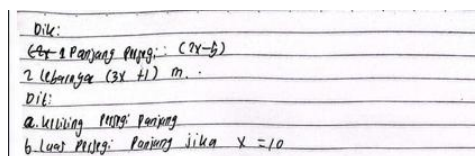 Dik:
1 Panjang Persegi: (2x-5)
2 lebarnya (3x +1) m.
Dit:
a. keliling Persegi Panjang
b. Luas Persegi Panjang jika x = 10